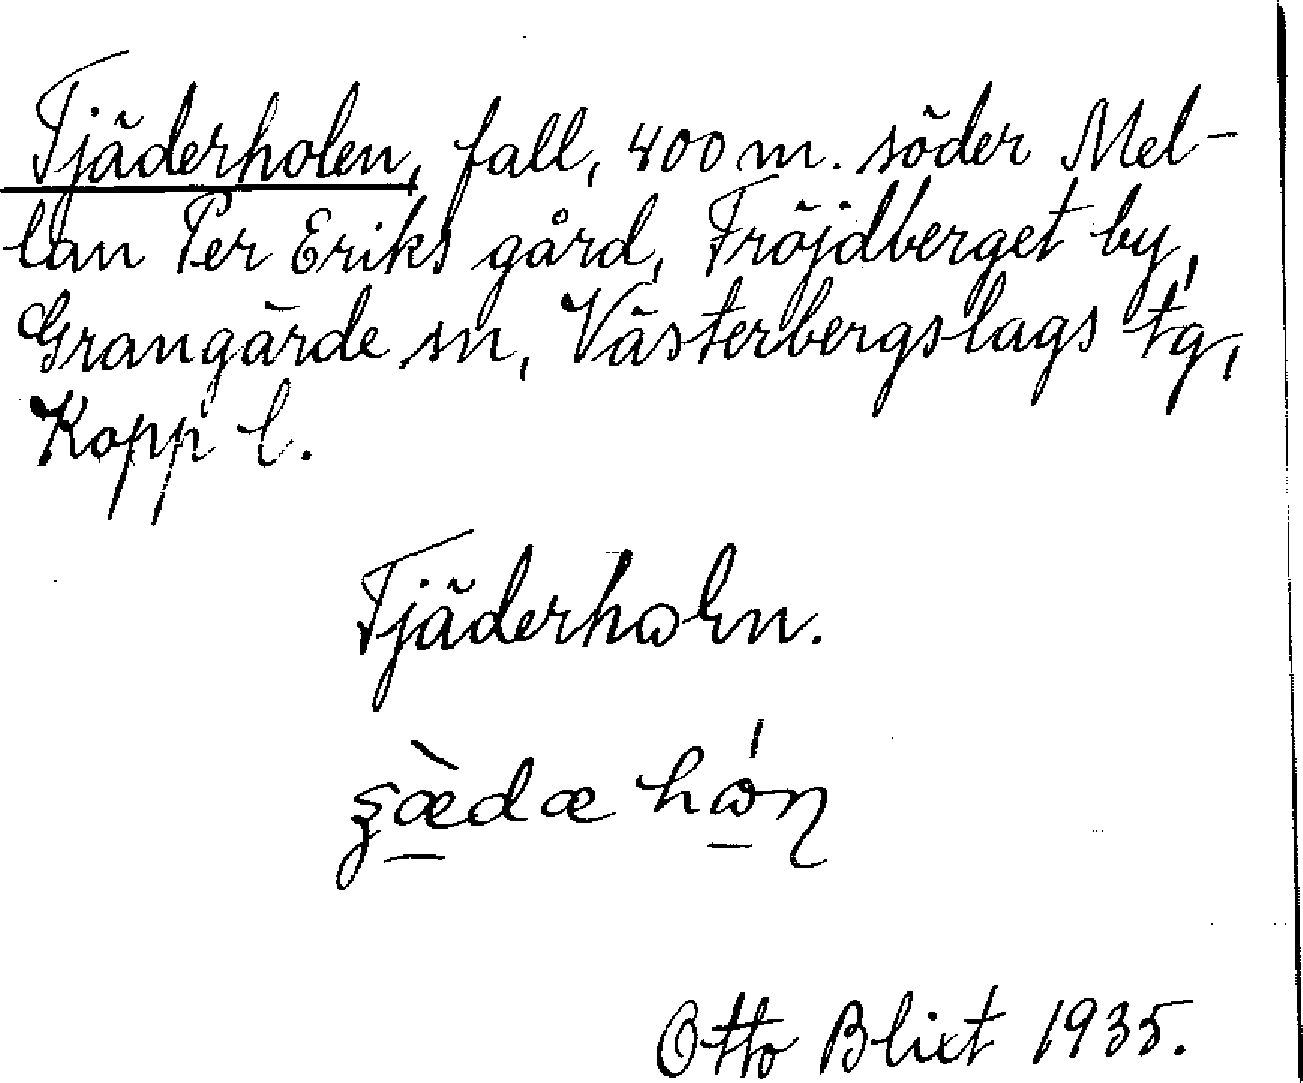 Tjäderholen, fall, 400 m. söder Mel-
lan Per Eriks gård, Fröjdberget by,
Grangärde sn, Västerbergslags tg,
Kopp l.
Tjäderhωln.
Otto Blixt 1935.